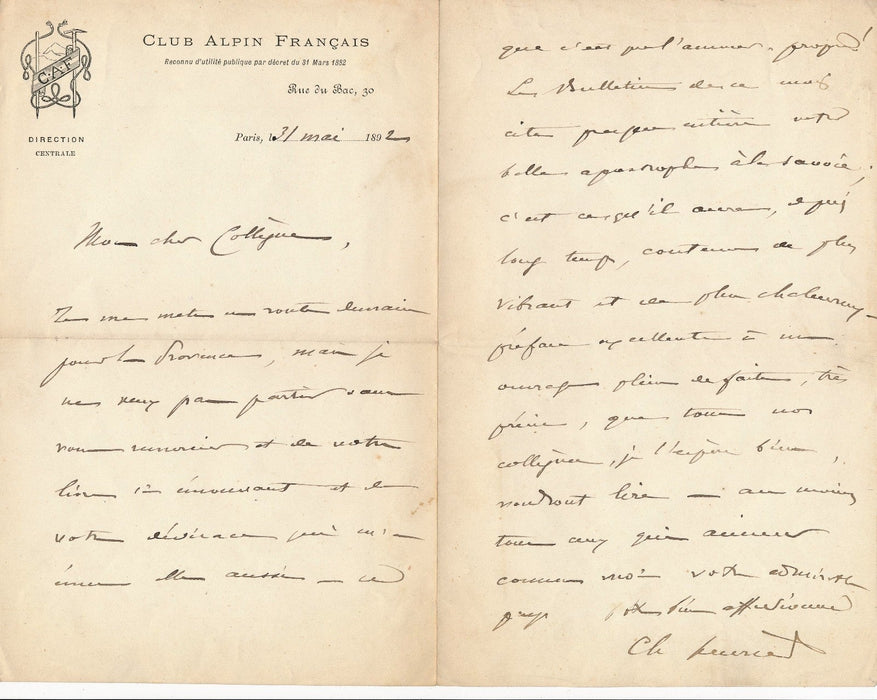 C.A.F
DIRECTION
CENTRALE
CLUB ALPIN FRANÇAIS
Reconnu d'utilité publique par décret du 31 Mars 1882
Rue du Bac, 30
Paris, l 31 mai 1892
Mon cher Collègue,
Je me mets en route demain
pour la Provence, mais je
ne veux pas partir sans
vous remercier et de votre
livre si émouvant et de
votre dédicace qui m'a
ému elle aussi
que c'est
Le Bulletin de ce mois
cite presque entière votre
belle apostrophe à la Savoie ;
c'est ce qu'il aura, depuis
long temps, contenu de plus
vibrant et de plus chaleureux
préface excellente à un
ouvrage plein de faits, très
précis, que tous nos
collègues, je l'espère bien,
voudront lire — au moins
tous ceux qui aiment
comme moi votre admirable
pays Votre bien affectionné
Ch